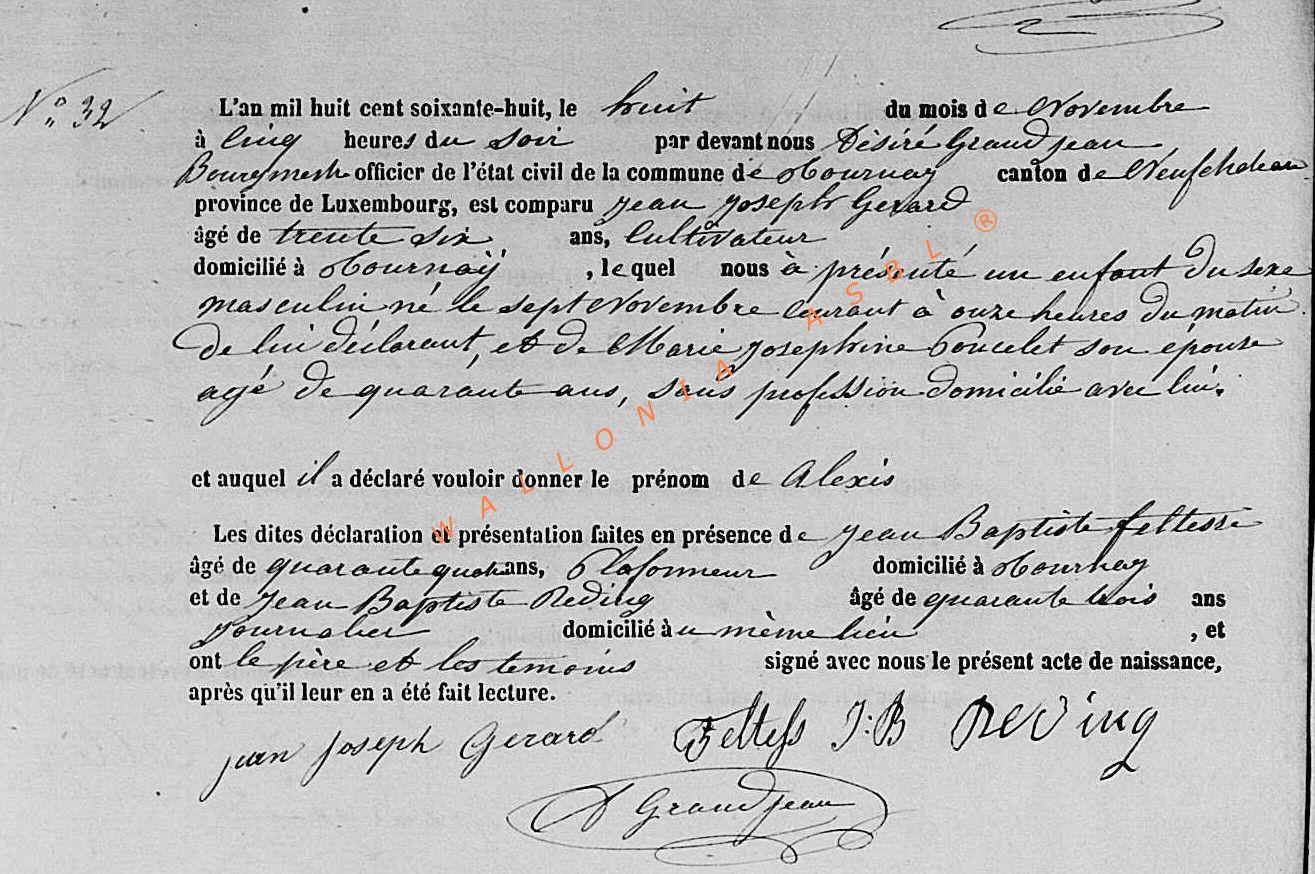 N° 32
L'an mil huit cent soixante-huit, le huit du mois de Novembre
à cinq heures du soir par devant nous Désiré Grandjean
Bourgmestre officier de l'état civil de la commune de Tournay canton de Neufchateau
province de Luxembourg, est comparu Jean Joseph Gerard
âgé de trente six ans, Cultivateur
domicilié à Tournay, lequel nous à présenté un enfant du sexe
masculin né le sept Novembre courant à onze heures du matin
de lui déclarant, et de Marie Josephine Poncelet son épouse
agé de quarante ans, sans profession domicilié avec lui.
et auquel il a déclaré vouloir donner le prénom de Alexis
Les dites déclaration et présentation faites en présence de Jean Baptiste
âgé de quarante ans, Plafonneur domicilié à Tournay
et de Jean Baptiste Reding âgé de quarante trois ans
Journalier domicilié au même lieu, et
ont le père et les temoins signé avec nous le présent acte de naissance,
après qu'il leur en a été fait lecture.
Jean Joseph Gerard Feltess J:B Reding
D Grandjean
WALLONIA ASBL ®